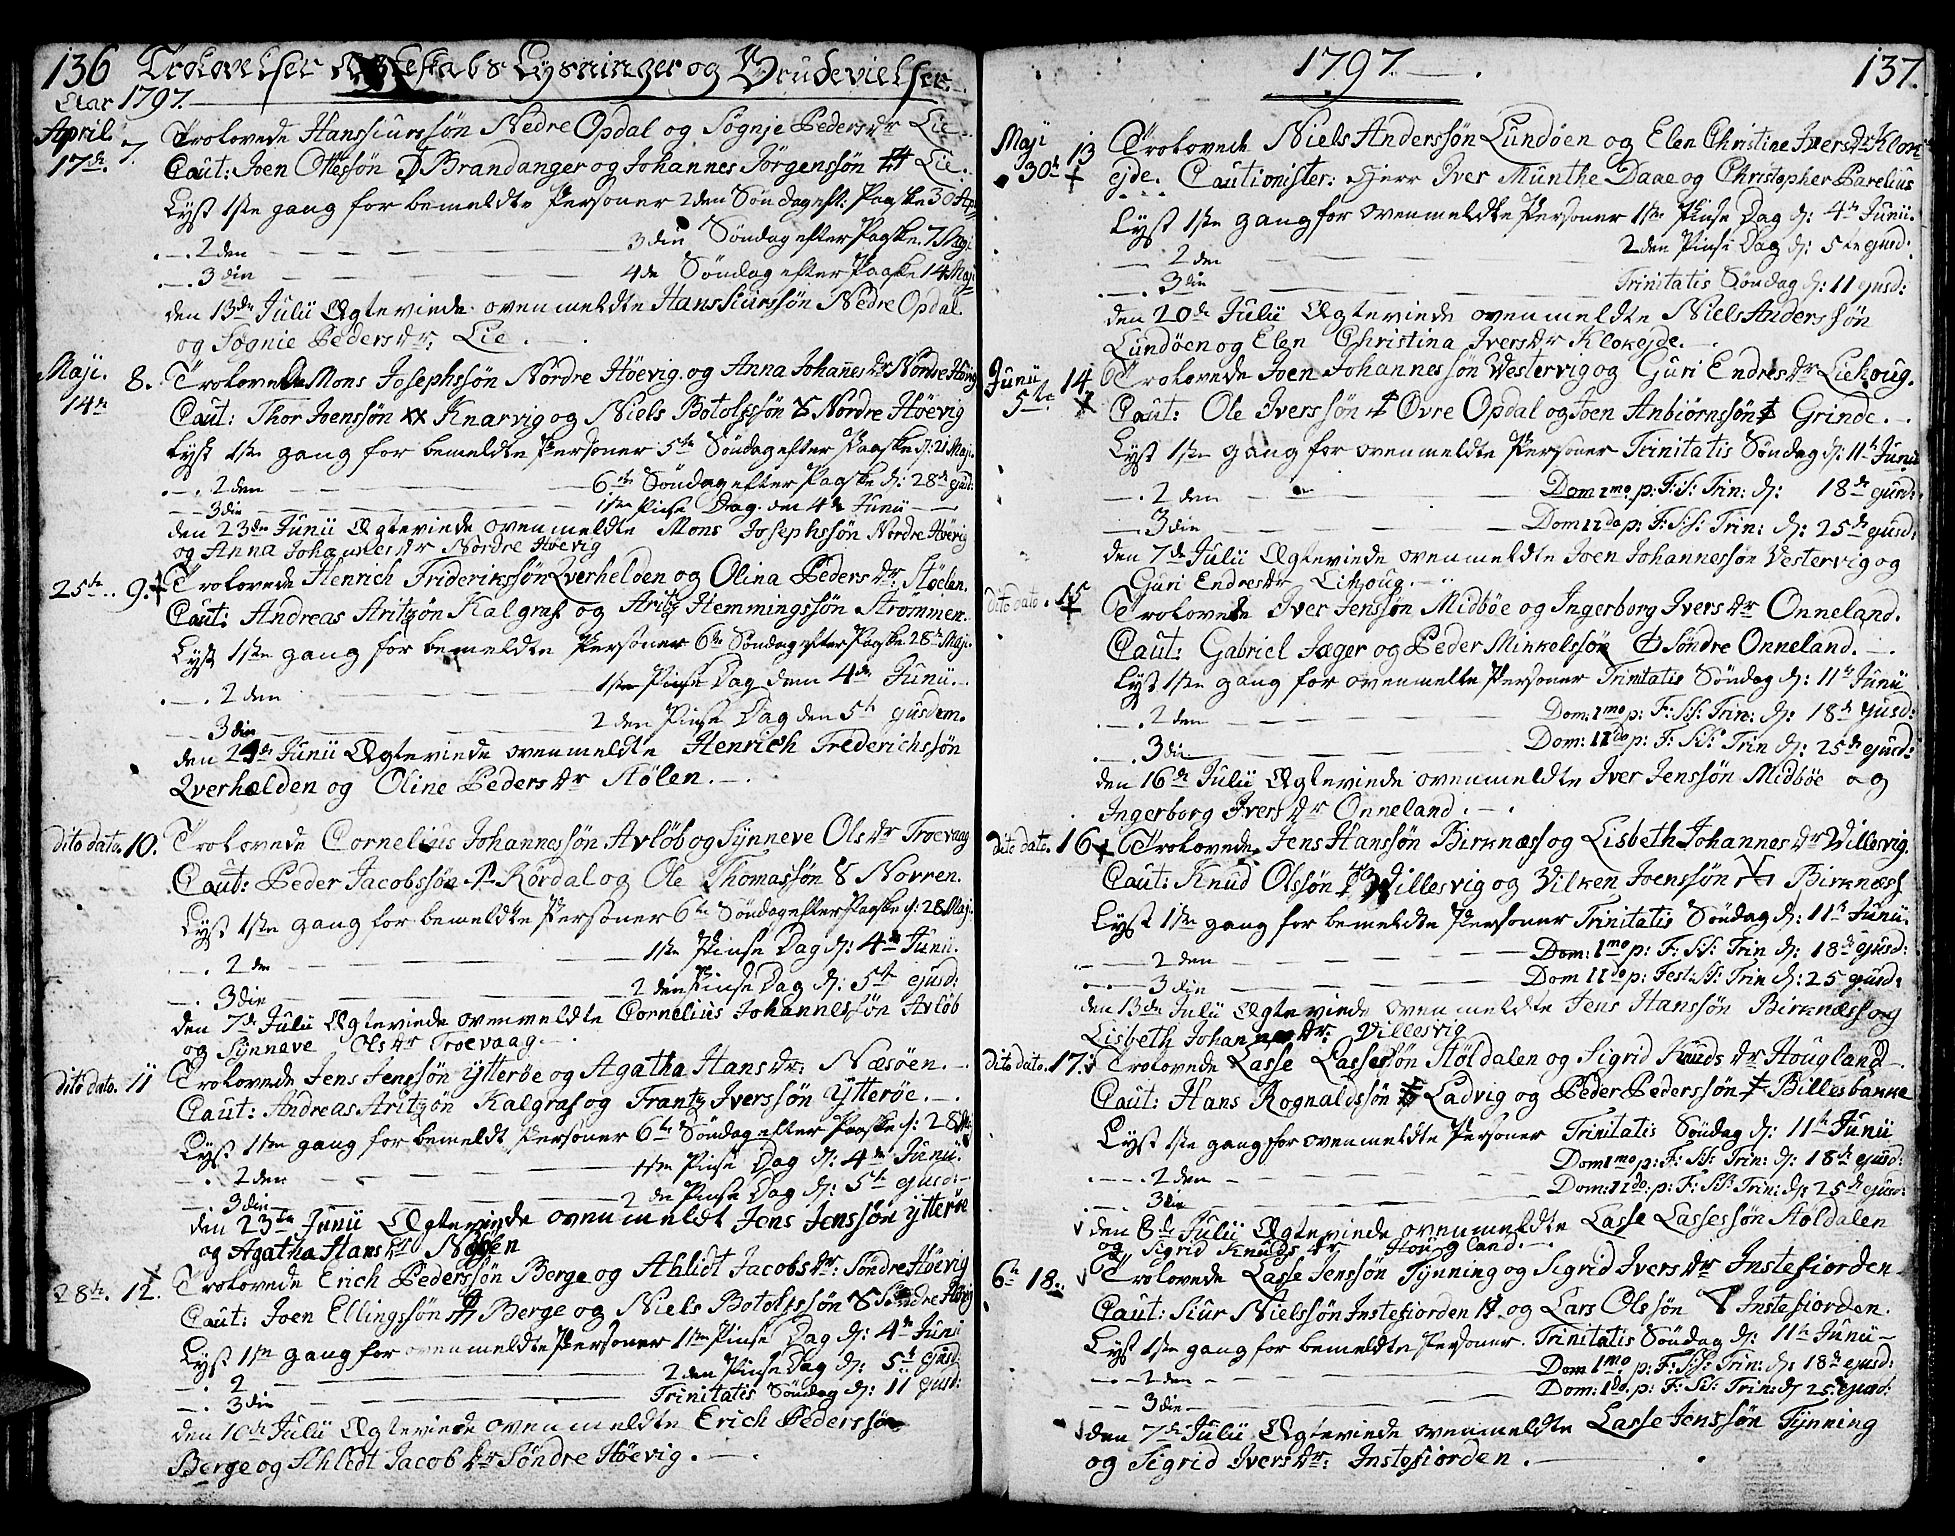 136 Trolovelser Ægteskabs Lysninger og Brudevielser.
Aar 1797.
April 17de. 7. Trolovede Hans Siurssøn Nedre Opdal og Søgnje Pedersdr Lie.
Caut: Joen Ottessøn Brandanger og Johannes Jörgenssøn Lie.
Lyst 1ste gang for bemeldte Personer 2den Søndag eft: Paaske 30 Apr
2den 3die Søndag efter Paaske 7 Maji
3die 4de Søndag efter Paaske 14 Maji
den 13de Julii Ægteviede ovenmeldte Hans Siurssøn Nedre Opdal
og Søgnie Pedersdr: Lie.
Maji. 14de 8. Trolovede Mons Josephssøn Nordre Høevig og Anna Johannesdr Nordre Høevig
Caut: Thor Joenssøn Knarvig og Niels Botolfssøn Nordre Höevig
Lyst 1ste gang for bemeldte Personer 5te Søndag efter Paaske d: 21 Maji
2den 6te Søndag efter Paaske d: 28de ejusd:
3die 1ste Pinse Dag den 4de Junii
den 23de Junii Ægteviede ovenmeldte Mons Josephssøn Nordre Høevig
og Anna Johannesdr Nordre Høevig
25te. 9. Trolovede Henrich Friderikssøn Qverhelden og Olina Pedersdr. Støelen.
Caut: Andreas Aritzøn Kalgraf og Aritz Hemmingssøn Strømmen.
Lyst 1ste gang for bemeldte Personer 6te Søndag efter Paaske 28de Maji.
2den 1ste Pinse Dag den 4de Junii.
3die 2den Pinse Dag den 5te ejusdem.
den 29de Junii Ægteviede ovenmeldte Henrich Frederichssøn
Qverhælden og Oline Pedersdr Stølen.
dito dato. 10. Trolovede Cornelius Johannessøn Avløb og Synneve Olsdr Troevaag
Caut: Peder Jacobssøn Rørdal og Ole Thomassøn Norren.
Lyst 1ste gang for bemeldte Personer 6te Søndag efter Paaske d: 28 Maj.
2den 1ste Pinse Dag d: 4de Junii.
3die 2den Pinse Dag d: 5te ejusd:
den 7de Julii Ægteviede ovenmeldte Cornelius Johannessøn Avløb
og Synneve Olsdr Troevaag.
dito dato. 11 Trolovede Jens Jenssøn Ytterøe og Agatha Hansdr: Næsøen.
Caut: Andreas Aritzøn Kalgraf og Frantz Iverssøn Ytterøe.
Lyst 1ste gang for bemeldt Personer 6te Søndag efter Paaske d: 28 Maj
2den 1ste Pinse Dag d: 4de Junii.
3die 2de Pinse Dag d: 5te ejusd:
den 23de Junii Ægteviede ovenmeldt Jens Jenssøn Ytterøe
og Agatha Hansdr Næsøen
28de. 12. Trolovede Erich Pederssøn Berge og Ahlidt Jacobsdr: Søndre Høevig
Caut: Joen Ellingssøn Berge og Niels Botolfssøn Søndre Høevig
Lyst 1ste gang for ovenmeldte Personer 1ste Pinse Dag d: 4de Junii
2 2den Pinse Dag d: 5te ejusd:
3die Trinitatis Søndag d: 11 ejusd:
den 10de Julii Ægteviede ovenmeldte Erich Pederssøn
Berge og Ahlidt Jacobsdr Søndre Høevig.
1797. 137.
Maji 30te 13 Trolovede Niels Anderssøn Lundøen og Elen Christine Iversdr Klok
ejde. Cautionister: Herr Iver Munthe Daae og Christopher Parelius
Lyst 1ste gang for ovenmeldte Personer 1ste Pinse Dag d: 4de Junii.
2den 2den Pinse Dag d: 5te ejusd:
3die Trinitatis Søndag d: 11 ejusd:
den 20de Julii Ægteviede ovenmeldte Niels Anderssøn
Lundøen og Elen Christina Iversdr Klokejde.
Junii 5te. 14 Trolovede Joen Johannessøn Vestervig og Guri Endresdr Liehoug.
Caut: Ole Iverssøn Øvre Opdal og Joen Anbiørnssøn Grinde.
Lyst 1ste gang for ovenmeldte Personer Trinitatis Søndag d: 11te Junii
2den Dom 1mo p: F: SS: Trin: d: 18de ejusd:
3die Dom 11do p: F: SS: Trin: d: 25de ejusd:
den 7de Julii Ægteviede ovenmeldte Joen Johannessøn Vestervig og
Guri Endresdr Liehoug.
dito dato. 15 Trolovede Iver Jenssøn Midbøe og Ingerborg Iversdr Onneland.
Caut: Gabriel Jæger og Peder Minkelssøn Søndre Onneland.
Lyst 1ste gang for ovenmelte Personer Trinitatis Søndag d: 11te Junii
2den Dom: 1mo p: F: SS: Trin: d: 18de ejusd:
3die Dom: 11do p: F: SS: Trin d: 25de ejusd:
den 16de Julii Ægteviede ovenmeldte Iver Jenssøn Midbøe og
Ingerborg Iversdr Onneland.
dito dato. 16 Trolovede Jens Hanssøn Birknæss og Lisbeth Johannesdr Willesvig.
Caut: Knud Olssøn Willesvig og Vilken Joenssøn Birknæss
Lyst 1ste gang for bemeldte Personer Trinitatis Søndag d: 11te Junii.
2den Dom: 1mo p: F: SS: Trin d: 18de ejusd:
3die Dom 11do p: Fest: SS: Trin d: 25 ejusd:
den 13de Julii Ægteviede ovenmeldte Jens Hanssøn Birknæss og
Lisbeth Johannesdr. Villesvig
dito dato. 17. Trolovede Lasse Lassessøn Støldalen og Sigrid Knudsdr Hougland
Caut: Hans Rognaldssøn Ladvig og Peder Pederssøn Billesbakke
Lyst 1ste gang for ovenmeldte Personer Trinitatis Søndag d: 11te Junii
2den Dom 1mo p: F: SS: Trin: d: 18de ejusd:
3die Dom: 11do. p: F: SS: Trin: d: 25de ejusd:
den 8de Julii Ægteviede ovenmeldte Lasse Lassessøn Støldalen
og Sigrid Knudsdr Hougland.
6te 18. Trolovede Lasse Jenssøn Tynning og Sigrid Iversdr Instefiorden
Caut: Siur Nielssøn Instefiorden og Lars Olssøn Instefiorden.
Lyst 1ste gang for bemeldte Personer. Trinitatis Søndag d: 11te Junii
2den Dom 1mo p: F: SS: Trin: d: 18de ejusd:
3die Dom: 1do. p: F: SS: Trin: d 25. ejusd:
den 7de Julii Ægteviede ovenmeldte Lasse Jenssøn Tynning
og Sigrid Iversdr: Instefiorden.